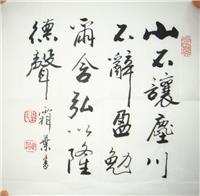 山不讓塵川
不辭盈勉
爾含弘以隆
德聲 霜葉書